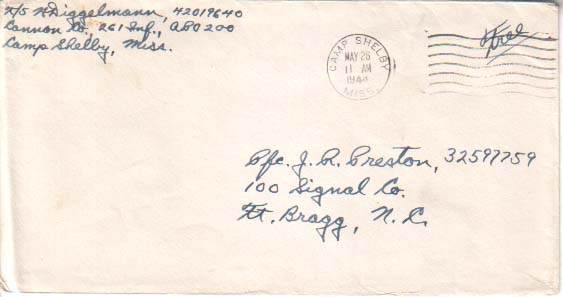 T/5 N Diggelmann, 42019640
Cannon Co, 261 Inf., APO 200
Camp Shelby, Miss.
CAMP SHELBY
MAY 26
11 AM
1944
MISS.
Free
Pfc. J. R. Creston, 32597759
100 Signal Co.
Ft. Bragg, N.C.